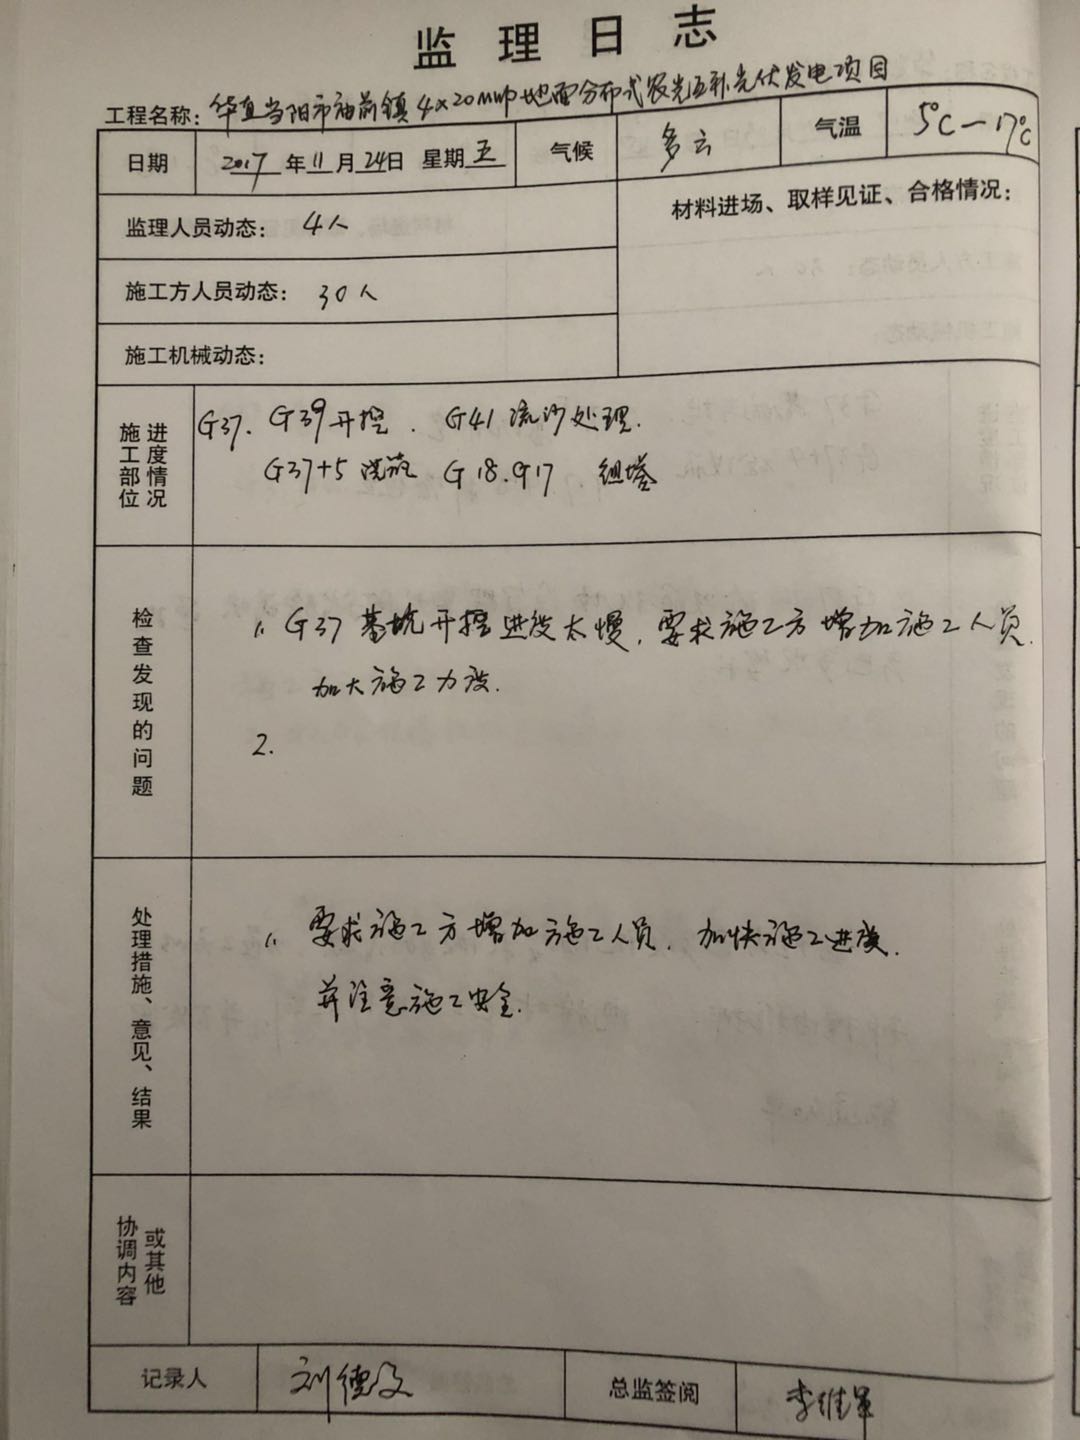 监理日志
工程名称：华直当阳市庙前镇4×20MWp地面分布式农光互补光伏发电项目
日期 2017年11月24日 星期五 气候 多云 气温 5℃—17℃
监理人员动态：4人
材料进场、取样见证、合格情况：
施工方人员动态：30人
施工机械动态：
施工部位 进度情况
G37. G39开挖. G41流沙处理.
G37+5浇筑 G18.G17 组塔
检查发现的问题
1. G37基坑开挖进度太慢,要求施工方增加施工人员.
加大施工力度.
2.
处理措施、意见、结果
1. 要求施工方增加施工人员.加快施工进度.
并注意施工安全.
协调内容 或其他
记录人 刘德 总监签阅 李维军